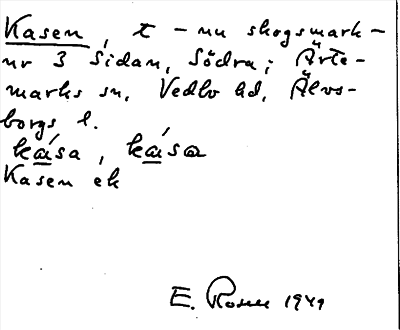 Kasen, t - nu skogsmark -
nr 3 Sidan, Södra; Ärte-
marks sn, Vedbo hd, Älvs-
borgs l.
ká̲sa, ká̲sa
Kasen ek
E. Rosell 1949